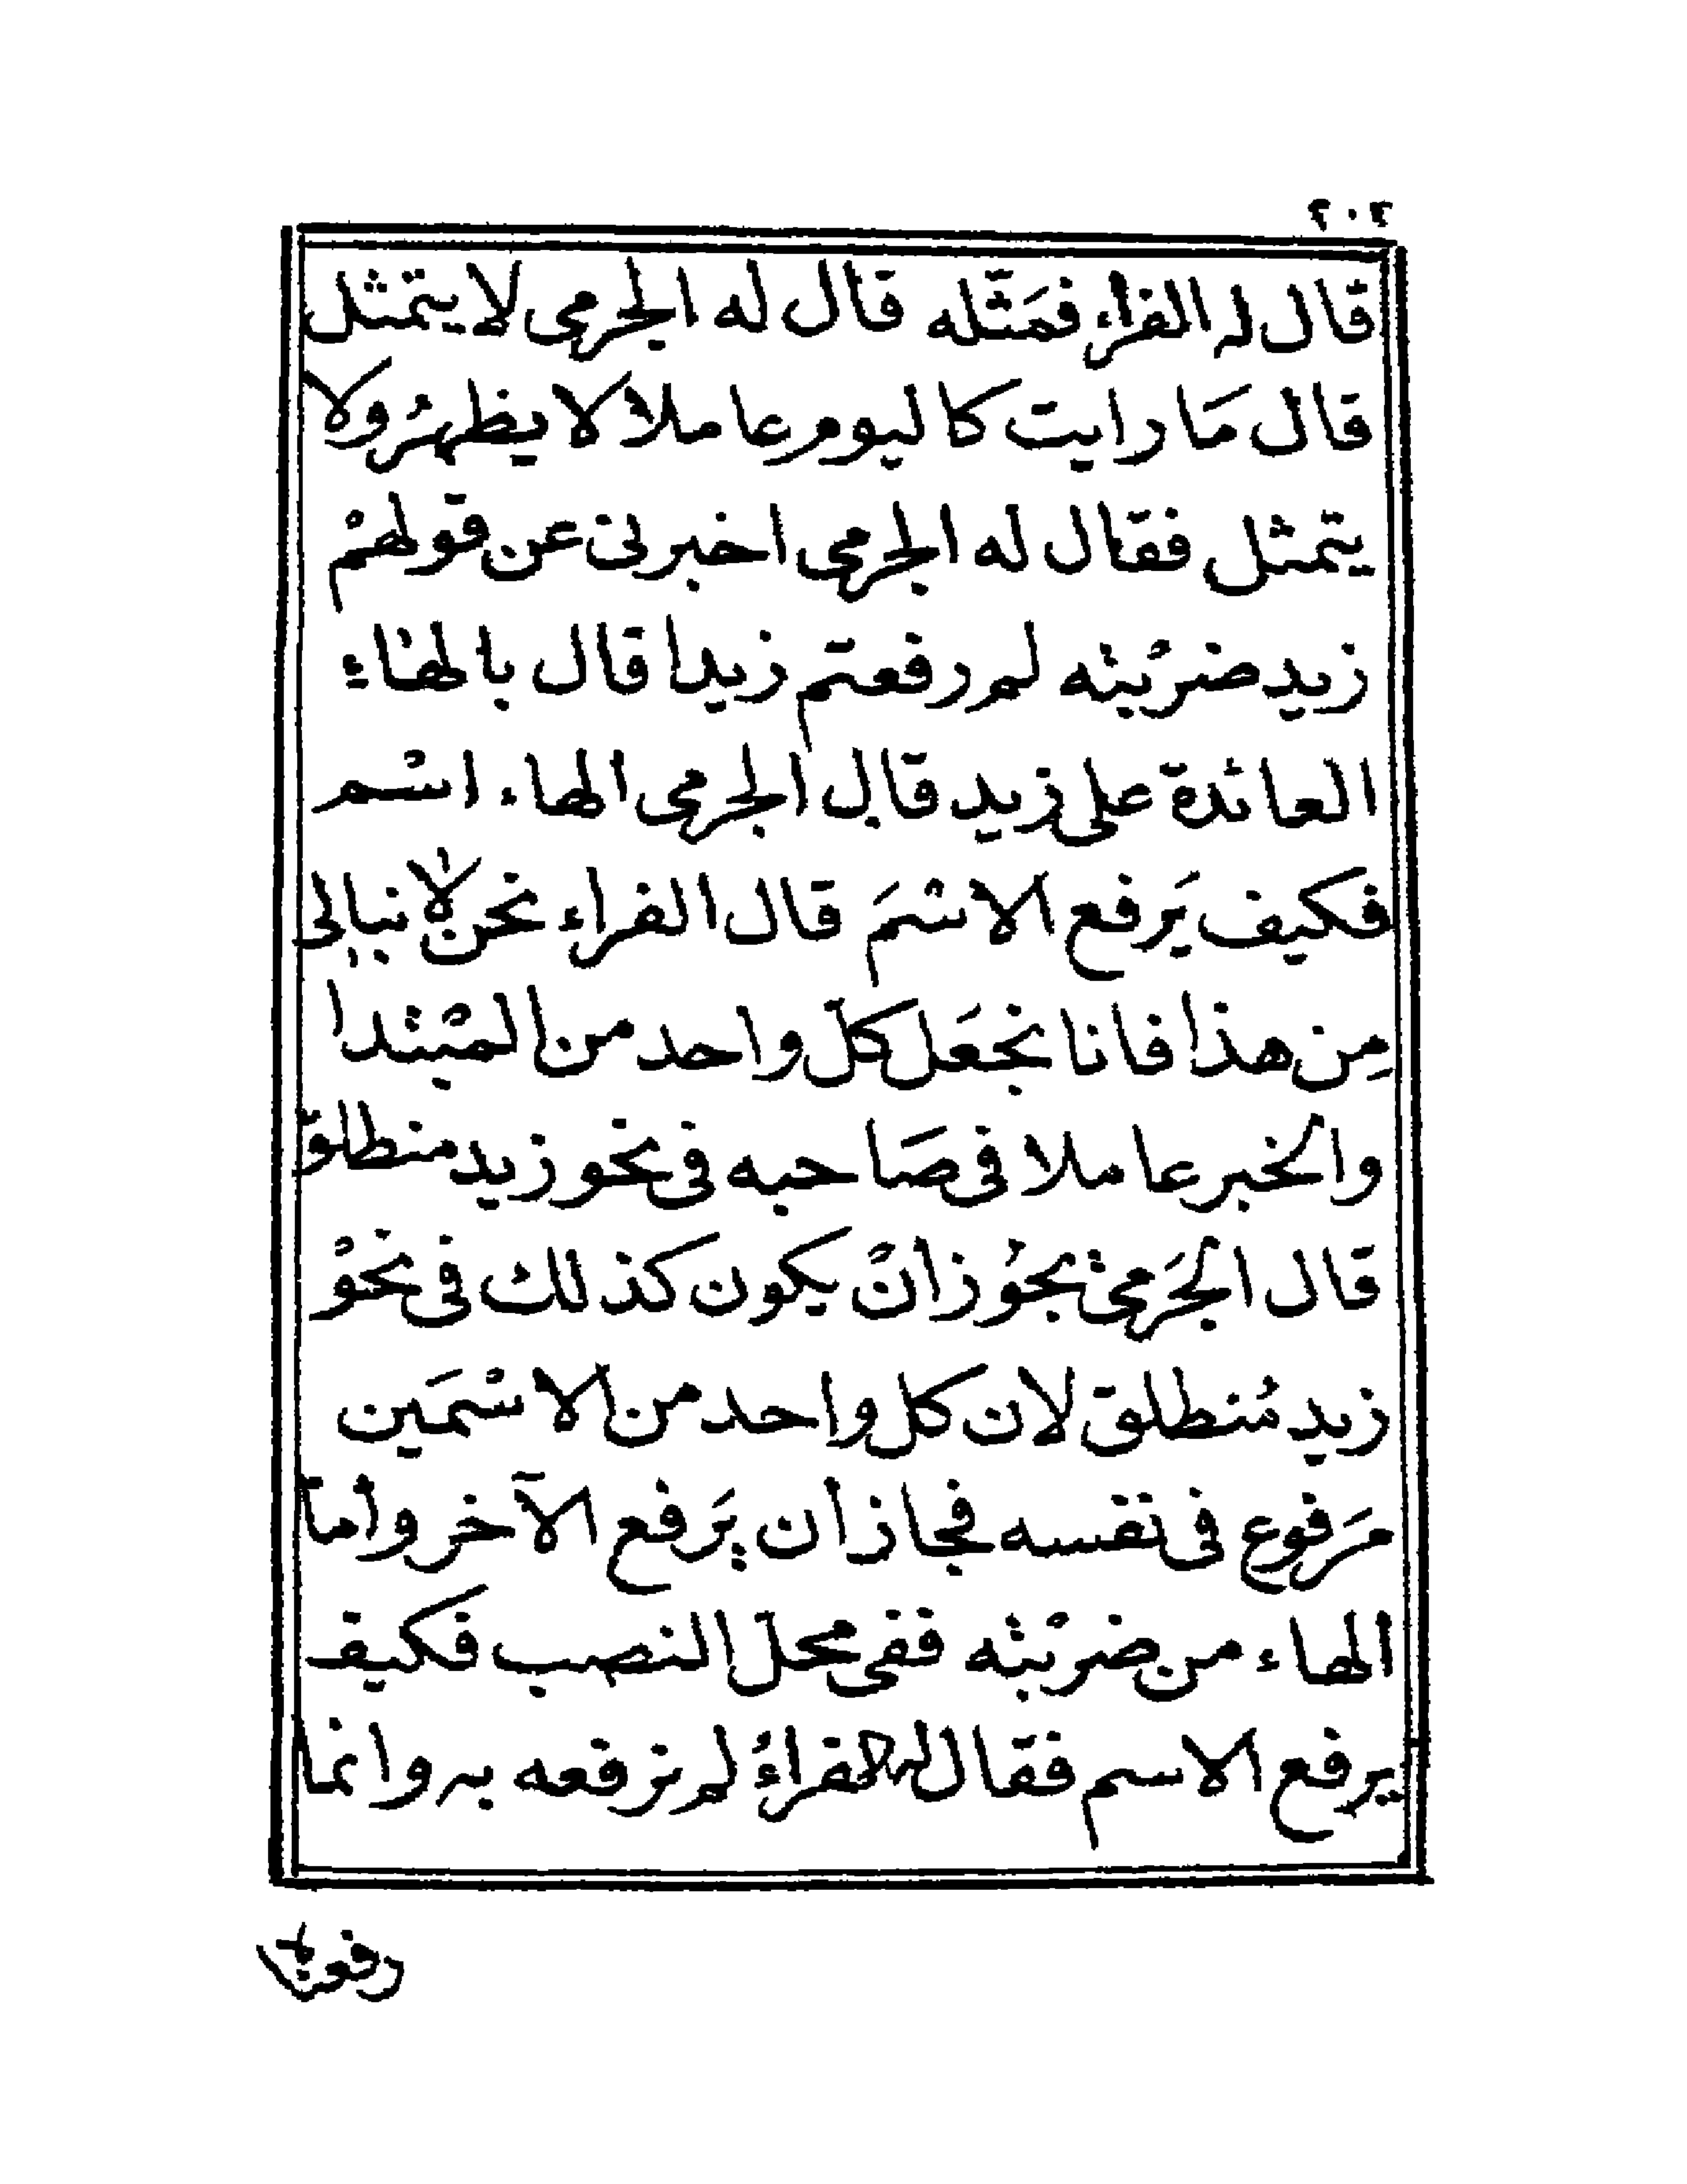 ٢٠٢
قال له الفراء فمَثّله قال له الجرمى لا يتمثل
قال مَا رايت كاليوم عاملا لا يظهرُ ولا
يتمثل فقال له الجرمى اخبرنى عن قولهمْ
زيد ضربْته لم رفعتم زيدا قال بالهاءِ
العائدة على زيد قال الجرمى الهاء اسْم
فكيف يَرفع الاسْمَ قال الفراء نحن لا نبالى
مِن هذا فانا نجعَل كل واحد من المبْتدا
والخبر عاملا فى صَاحبه فى نحو زيد منطلق
قال الجَرمىْ يجوُز أنْ يكون كذلك فى نحوْ
زيد مُنطلق لان كل واحد من الاسْمَين
مَرفوع فى نفسه فجاز أن يَرفع الآخر وأما
الهاء من ضربْته ففى محل النصب فكيف
يرفع الاسم فقال له الفراءُ لم نرفعه به وانما
رفعناه